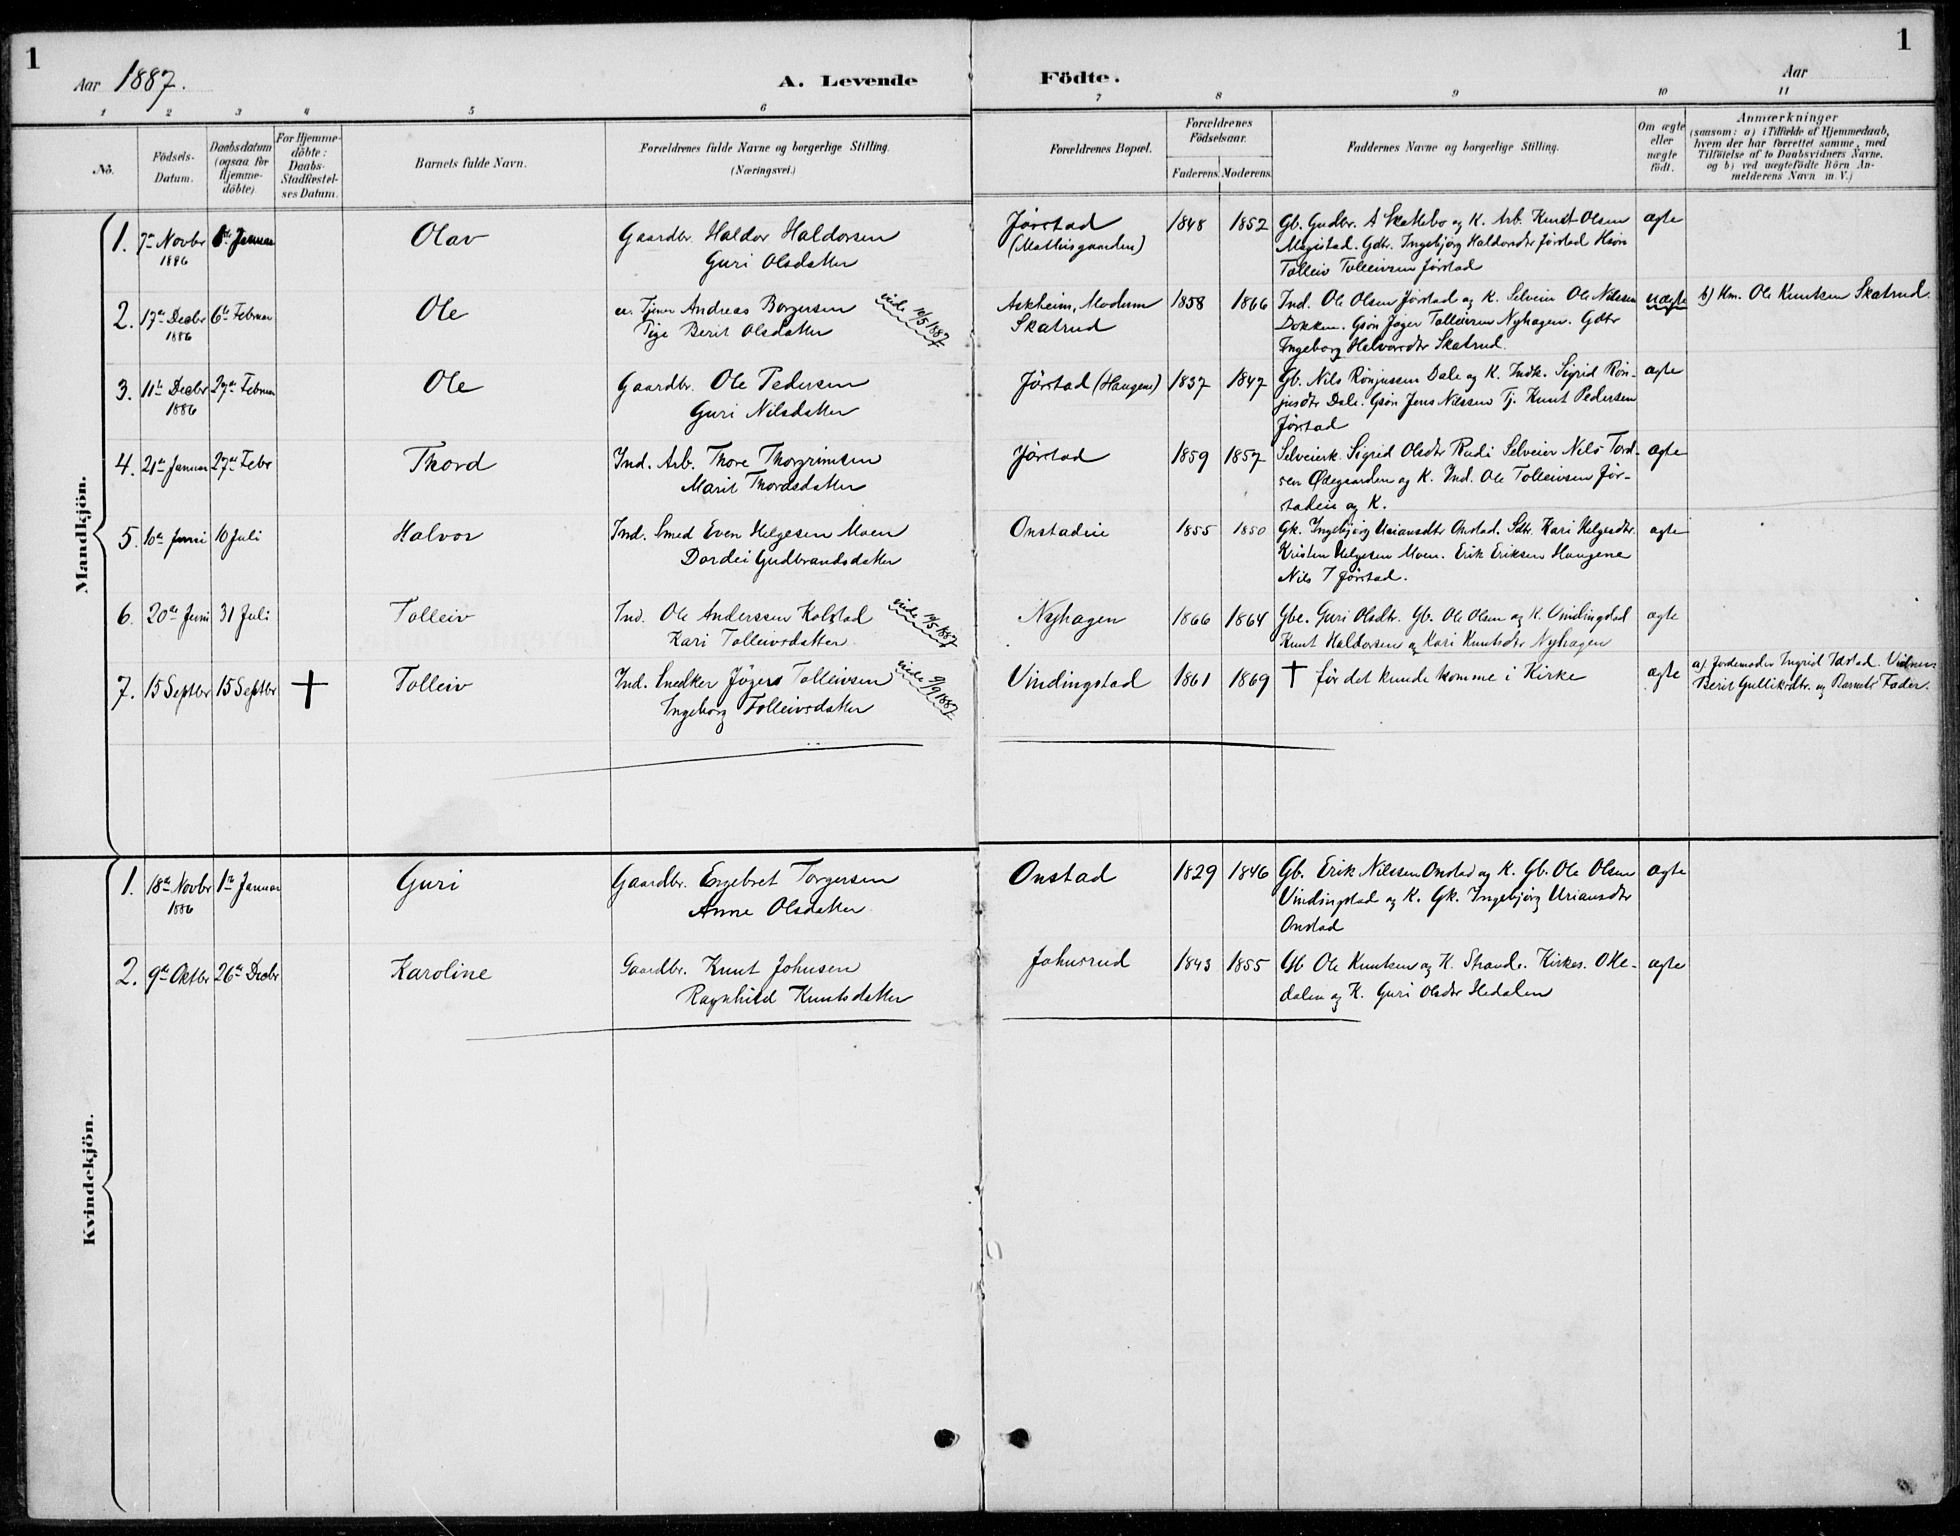 1
1
Aar 1887.
A. Levende Födte.
Aar
1 2 3 4 5 6 7 8 9 10 11
No.
Födsels-
Datum.
Daabsdatum
(ogsaa for
Hjemme-
döbte)
For Hjemme-
döbte:
Daabs-
Stadfæstel-
ses Datum.
Barnets fulde Navn.
Forældrenes fulde Navne og borgerlige Stilling.
(Næringsvei.)
Forældrenes Bopæl.
Forældrenes
Födselsaar.
Faderens. Moderens.
Faddernes Navne og borgerlige Stilling.
Om ægte
eller
uægte
födt.
Anmærkninger
(saasom: a) i Tilfælde af Hjemmedaab,
hvem der har forrettet samme, med
Tilföielse af to Daabsvidners Navne,
og b) ved uægtefödte Börn An-
melderens Navn m. V.)
Mandkjön.
1. 7de Novbr 6te Januar Olav Gaardbr. Haldor Haldorsen Jørstad 1848 1852 Gb. Gudbr. A Skattebo og K. Arb. Knut Olsen ægte
1886 Guri Olsdatter (Mathisgaarden) Gdtr. Ingebjörg Haldorsdtr Jørstad
Tolleiv Tolleivsen Jørstad
2. 17de Decbr 6te Februar Ole Tjener Andreas Borgersen vide 10/5 1887 Askheim, Modum 1858 1866 Ind. Ole Olsen Jørstad og K. Selveier Ole Nilssen uægte b) Hm. Ole Knutsen Skatrud.
1886 Pige Berit Olsdatter Skatrud Dokken. Gsøn Jøger Tolleivsen Nyhagen. Gdtr
Ingeborg Halvorsdtr Skatrud.
3. 11te Decbr 27de Februar Ole Gaardbr. Ole Pedersen Jørstad (Haugene) 1837 1847 Gb. Nils Rønjussen Dale og K. Indk. Sigrid Røn- ægte
1886 Guri Nilsdatter jusdtr Dale. Gsøn Jens Nilssen Tj. Knut Pedersen
Jørstad
4. 21de Januar 27de Febr Thord Ind. Arb. Thore Thorgrimsen Jørstad 1859 1857 Selveierk. Sigrid Olsdtr Rudi Selveier Nils Tord- ægte
Marit Thordsdatter sen Ødegaarden og K. Ind. Ole Tolleivsen Jør-
stadeie og K.
5. 10de Juni 10 Juli Halvor Ind. Smed Even Helgesen Moen Onstadeie 1855 1850 Gk. Ingebjørg Uriansdtr Onstad. Sdtr. Kari Helgesdtr. ægte
Dordei Gudbrandsdatter Kristen Helgesen Moen. Erik Eriksen Haugene
Nils T Jørstad.
6. 20de Juni 31 Juli Tolleiv Ind. Ole Anderssen Kolstad vide 14/5 1887 Nyhagen 1866 1864 Gbe. Guri Olsdtr. Gb. Ole Olsen og K. Vindingstad ægte
Kari Tolleivsdatter Knut Haldorsen og Kari Knutsdtr Nyhagen
7. 15 Septbr 15 Septbr † Tolleiv Ind. Snedker Jøgers Tolleivsen vide 9/9 1887 Vindingstad 1861 1869 † før det kunde komme i Kirke ægte a) Jordemoder Ingrid Idstad. Vidner:
Ingeborg Tolleivsdatter Berit Gulliksdtr. og Barnets Fader.
Kvindekjön.
1. 18de Novbr 1ste Januar Guri Gaardbr. Engebret Torgersen Onstad 1829 1846 Gb. Erik Nilssen Onstad og K. Gb. Ole Olsen ægte
1886 Anne Olsdatter Vindingstad og K. Gk. Ingebjørg Uriansdtr
Onstad
2. 9de Oktbr 26de Decbr Karoline Gaardbr. Knut Johnsen Johnsrud 1843 1855 Gb Ole Knutsen og K. Strande. Kirkes. O He- ægte
Ragnhild Knutsdatter dalen og K. Guri Olsdtr Hedalen